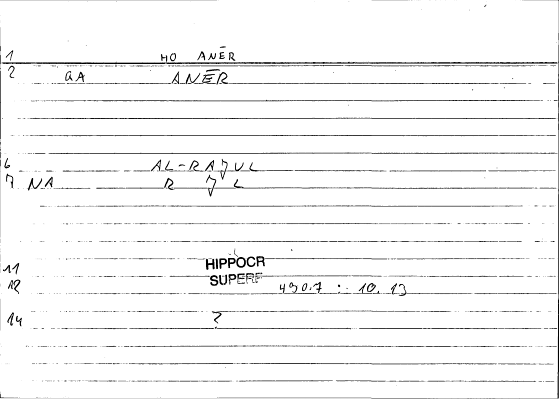 1 HO ANĒR
2 GA ANĒR
6 AL-RAJUL
7 NA R J L
11 HIPPOCR
12 SUPERF 430.7 : 10.13
14 2